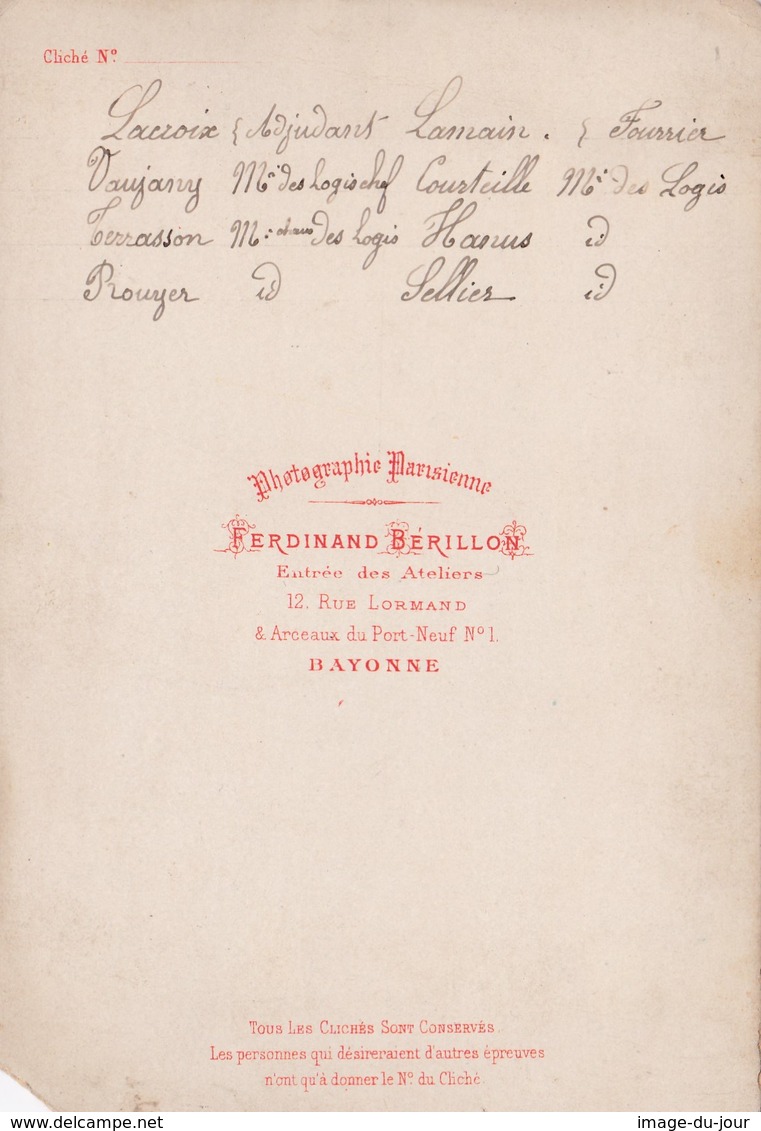 Cliché Nº
Lacroix { Adjudant Lamain . } Fourrier
Vaujany Mal des Logis chef Courteille Mal des Logis
Terrasson Mal des Logis Hanus id
Rouyer id Sellier id
Photographie Parisienne
FERDINAND BÉRILLON
Entrée des Ateliers
12, RUE LORMAND
& Arceaux du Port-Neuf Nº 1.
BAYONNE
TOUS LES CLICHÉS SONT CONSERVÉS.
Les personnes qui désireraient d'autres épreuves
n'ont qu'à donner le Nº du Cliché.
delcampe.net image-du-jour